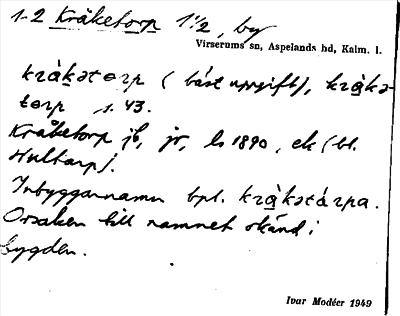 1-2 Kråketorp 1 1/2, by
Virserums sn, Aspelands hd, Kalm. l.
kråkətorp (bäst uppgift), kråkə-
torp s. 43.
Kråketorp jb, jr, ls 1890, ek (bl.
Hultarp).
Inbyggarnamn bpl. kråkətárpa.
Orsaken till namnet okänd i
bygden.
Ivar Modéer 1949